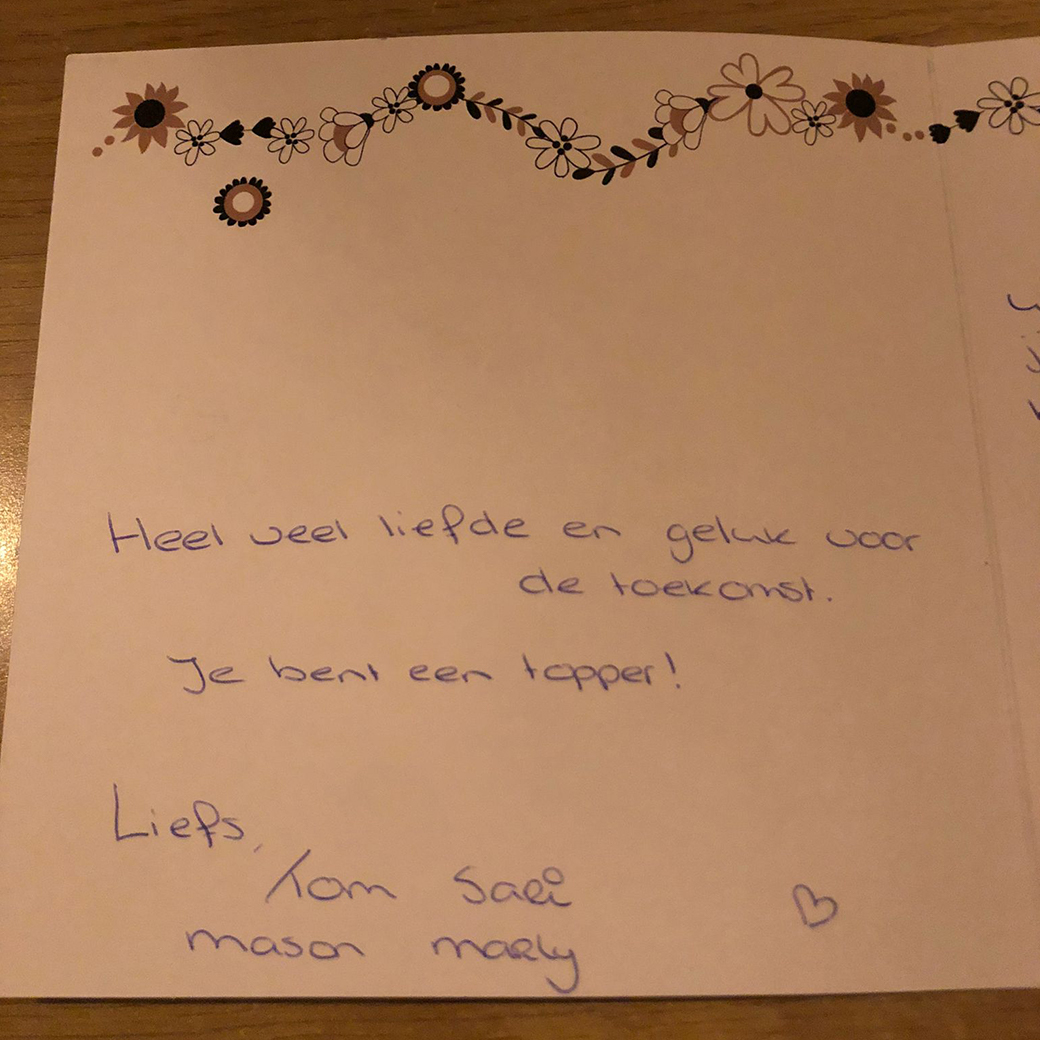 Heel veel liefde en geluk voor
de toekomst.
Je bent een topper!
Liefs,
Tom Saei
mason maely